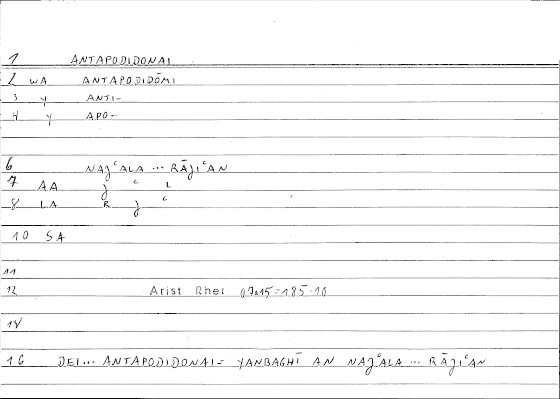 1 ANTAPODIDONAI
2 WA ANTAPODIDŌMI
3 Y ANTI-
4 Y APO-
6 NAJʿALA ... RĀJIʿAN
7 AA J ʿ L
8 LA R J ʿ
10 SA
11
12 Arist Rhet 07a15=185.10
14
16 DEI... ANTAPODIDONAI= YANBAGHĪ AN NAJʿALA ... RĀJIʿAN